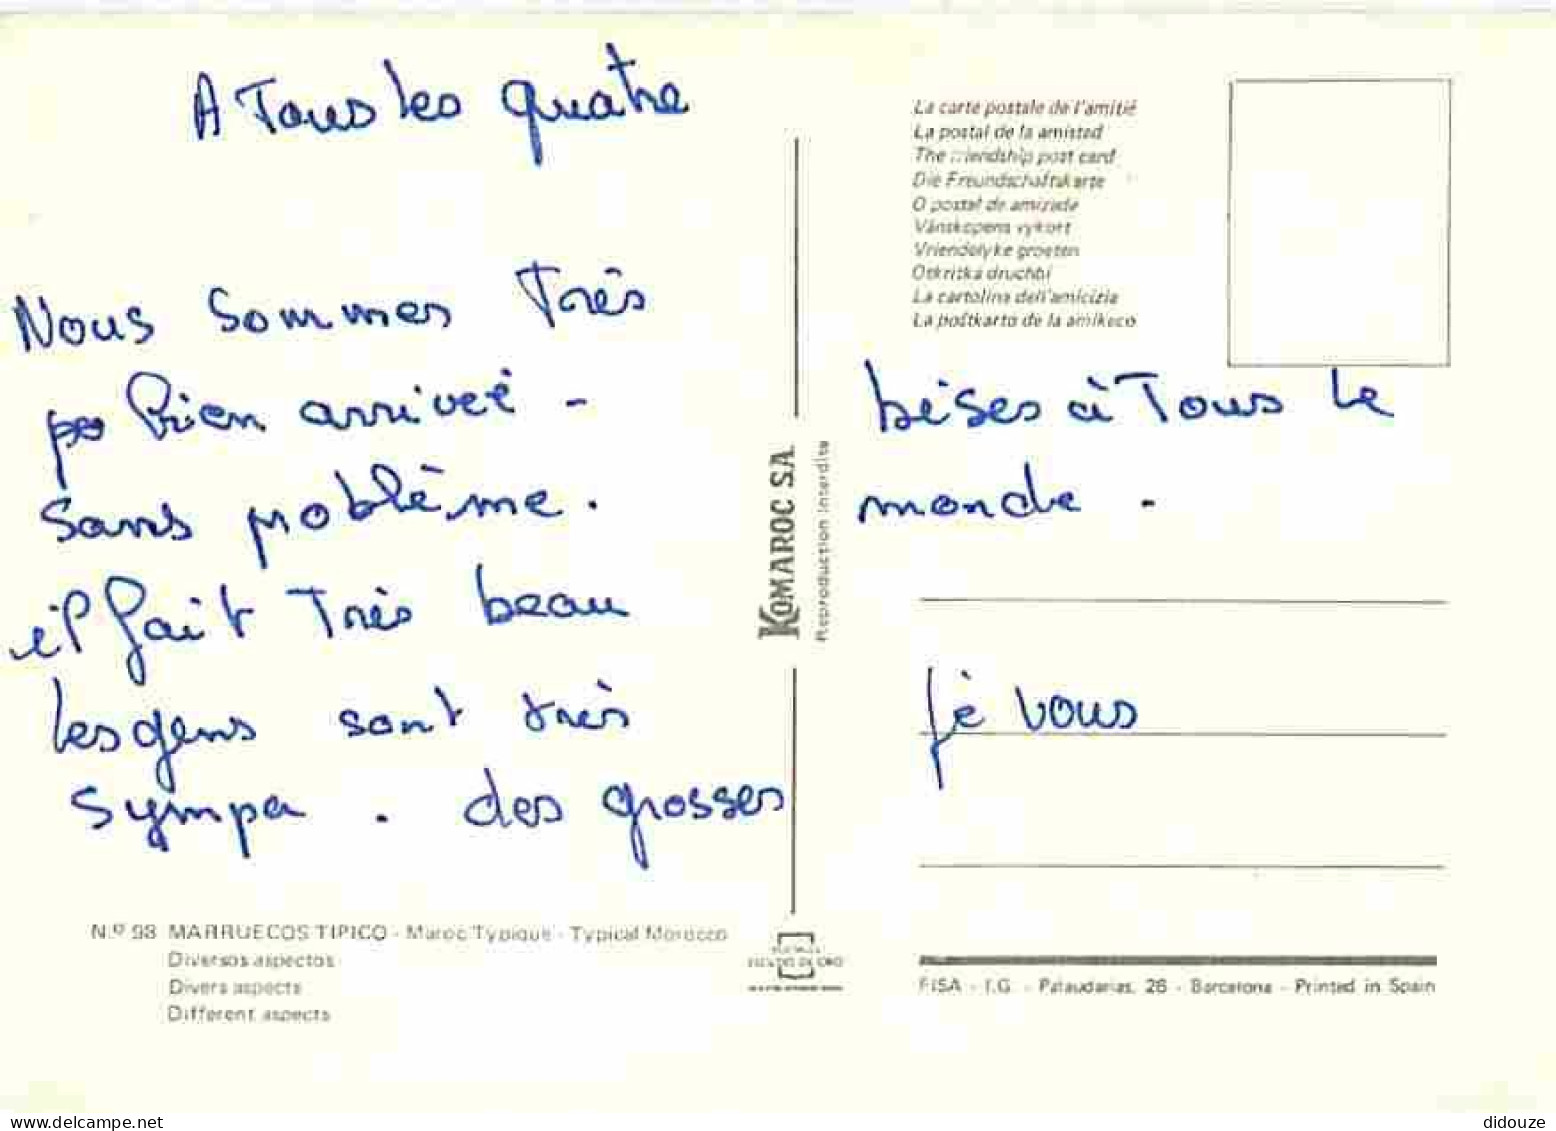 A Tous les quatre
Nous sommes Très
bien arriveé -
sans problème.
il fait Très beau
les gens sont très
sympa . des grosses
béses à Tous le
monde .
vous
La carte postale de l'amitié
La postal de la amistad
The friendship post card
Die Freundschaftskarte
O postal de amizade
Vänskapens vykort
Vriendelyke groeten
Otkritka druchbi
La cartolina dell'amicizia
La poŝtkarto de la amikeco
KOMAROC SA.
Reproduction interdite
N.º 98 MARRUECOS TIPICO - Maroc Typique - Typical Morocco
Diversos aspectos
Divers aspects
Different aspects
ESCUDO DE ORO
FISA - I.G. - Palaudarias, 26 - Barcelona - Printed in Spain
delcampe.net
didouze